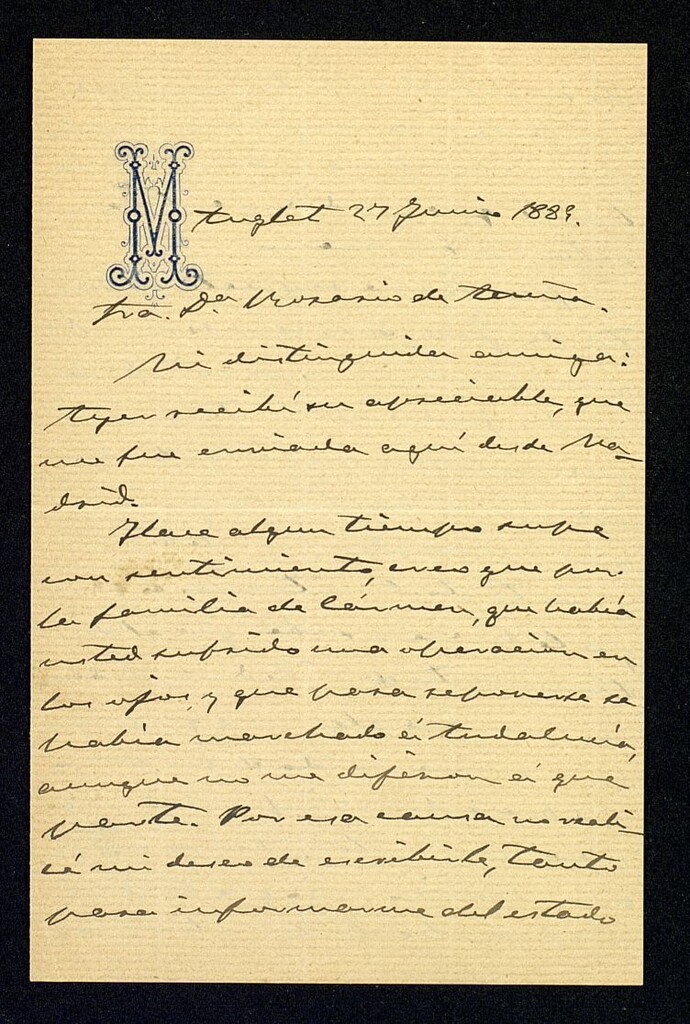 M
Anglet 27 Junio 1889.
Sra. Dª Rosario de Acuña.
Mi distinguida amiga:
Ayer recibí su apreciable, que
me fue enviada aquí desde Ma-
drid.
Hace algun tiempo supe
con sentimiento, creo que por
la familia de Cármen, que había
usted sufrido una operacion en
los ojos, y que para reponerse se
había marchado á Andalucía,
aunque no me dijeron á que
parte. Por esa causa no reali-
cé mi deseo de escribirle, tanto
para informarme del estado